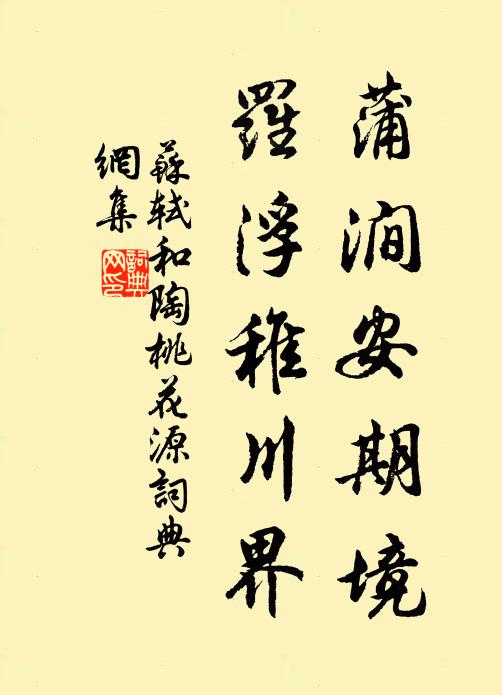 蒲澗安期境
羅浮稚川界
蘇軾和陶桃花源詞典
網集
詞典
网印